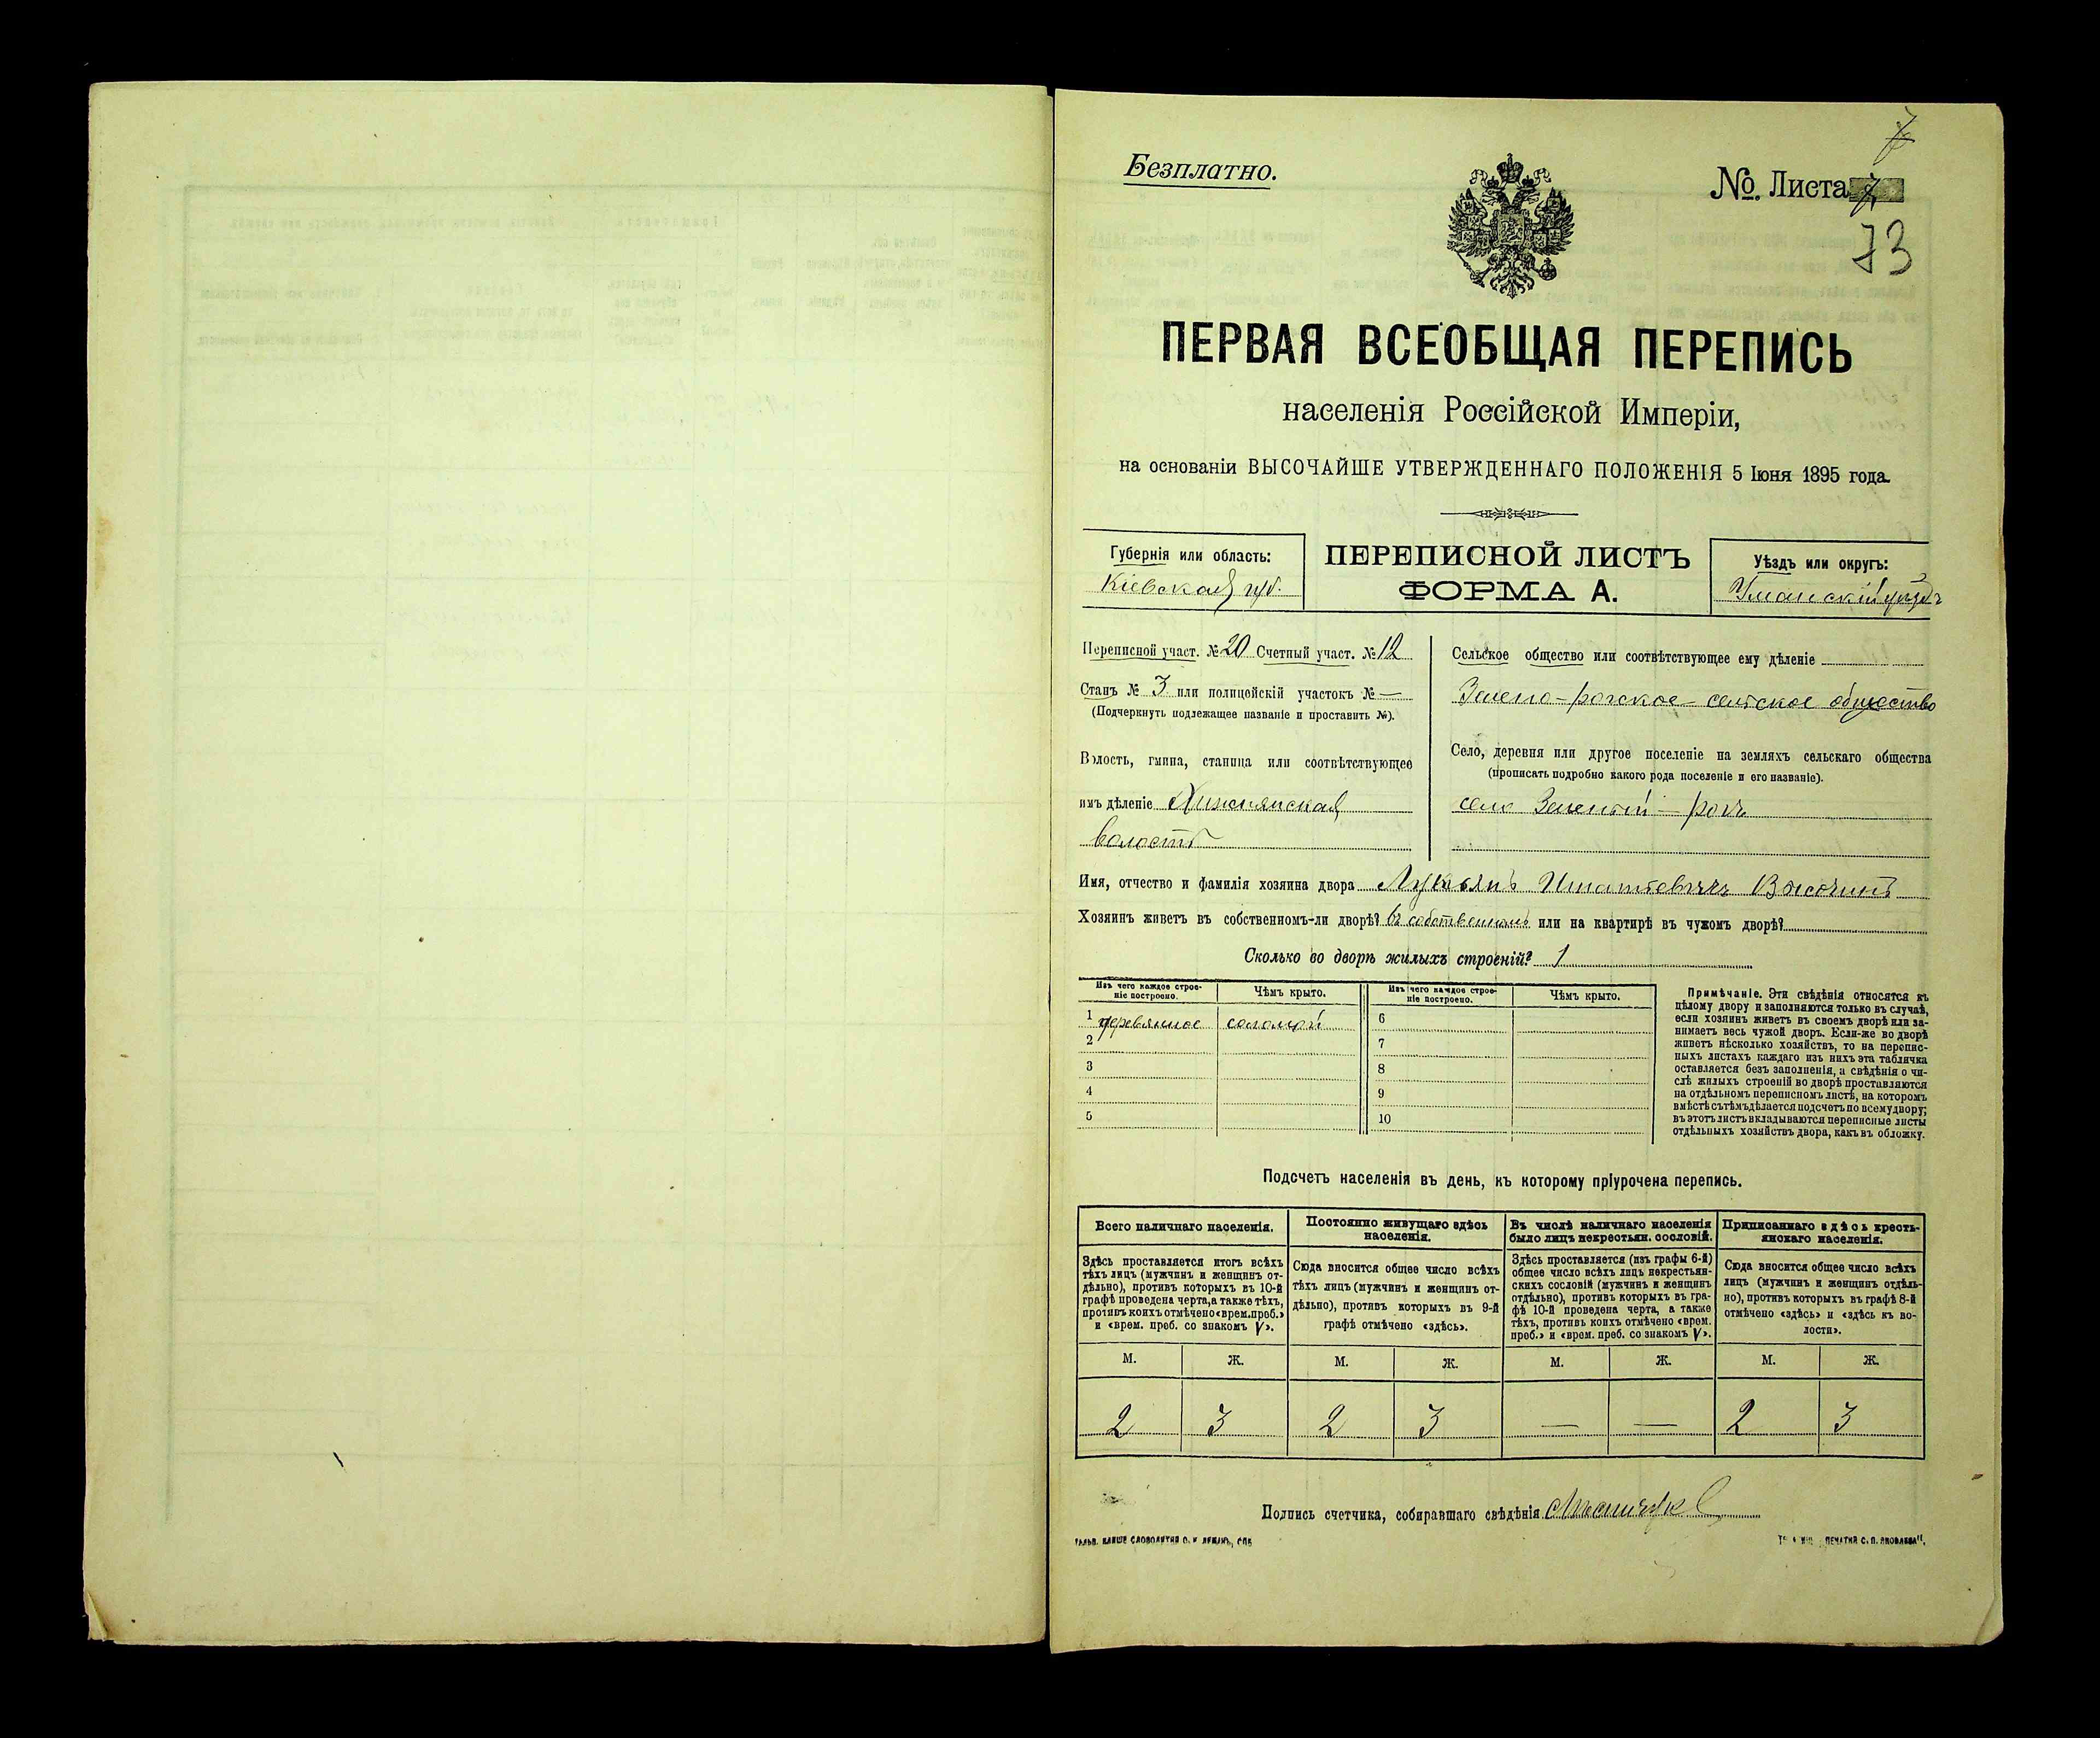 7
Безплатно.
№. Листа 7
73
ПЕРВАЯ ВСЕОБЩАЯ ПЕРЕПИСЬ
населенія Россійской Имперіи,
на основаніи ВЫСОЧАЙШЕ УТВЕРЖДЕННАГО ПОЛОЖЕНІЯ 5 Іюня 1895 года.
Губернія или область:
Кіевская губ.
ПЕРЕПИСНОЙ ЛИСТЪ
ФОРМА А.
Уѣздъ или округъ:
Уманскій уѣздъ
Переписной участ. № 20 Счетный участ. № 12
Станъ № 3 или полицейскій участокъ № —
(Подчеркнуть подлежащее названіе и проставить №).
Волость, гмина, станица или соотвѣтствующее
имъ дѣленіе Хижнянская
волость
Сельское общество или соотвѣтствующее ему дѣленіе
Зелено-рогское сельское общество
Село, деревня или другое поселеніе на земляхъ сельскаго общества
(прописать подробно какого рода поселеніе и его названіе).
село Зеленый-рогъ
Имя, отчество и фамилія хозяина двора Лукьянъ Игнатьевичъ
Хозяинъ живетъ въ собственномъ-ли дворѣ? въ собственномъ или на квартирѣ въ чужомъ дворѣ?
Сколько во дворѣ жилыхъ строеній? 1
Изъ чего каждое строе-
ніе построено.
Чѣмъ крыто.
Изъ чего каждое строе-
ніе построено.
Чѣмъ крыто.
1 деревянное соломой
2
3
4
5
6
7
8
9
10
Примѣчаніе. Эти свѣдѣнія относятся къ
цѣлому двору и заполняются только въ случаѣ,
если хозяинъ живетъ въ своемъ дворѣ или за-
нимаетъ весь чужой дворъ. Если-же во дворѣ
живетъ нѣсколько хозяйствъ, то на перепис-
ныхъ листахъ каждаго изъ нихъ эта табличка
оставляется безъ заполненія, а свѣдѣнія о чи-
слѣ жилыхъ строеній во дворѣ проставляются
на отдѣльномъ переписномъ листѣ, на которомъ
вмѣстѣ съ тѣмъ дѣлается подсчетъ по всему двору;
въ этотъ листъ вкладываются переписные листы
отдѣльныхъ хозяйствъ двора, какъ въ обложку.
Подсчетъ населенія въ день, къ которому пріурочена перепись.
Всего наличнаго населенія.
Здѣсь проставляется итогъ всѣхъ
тѣхъ лицъ (мужчинъ и женщинъ от-
дѣльно), противъ которыхъ въ 10-й
графѣ проведена черта, а также тѣхъ,
противъ коихъ отмѣчено «врем. преб.»
и «врем. преб. со знакомъ V».
Постоянно живущаго здѣсь
населенія.
Сюда вносится общее число всѣхъ
тѣхъ лицъ (мужчинъ и женщинъ от-
дѣльно), противъ которыхъ въ 9-й
графѣ отмѣчено «здѣсь».
Въ числѣ наличнаго населенія
было лицъ некрестьян. сословій.
Здѣсь проставляется (изъ графы 6-й)
общее число всѣхъ лицъ некрестьян-
скихъ сословій (мужчинъ и женщинъ
отдѣльно), противъ которыхъ въ гра-
фѣ 10-й проведена черта, а также
тѣхъ, противъ коихъ отмѣчено «врем.
преб.» и «врем. преб. со знакомъ V».
Приписаннаго здѣсь кресть-
янскаго населенія.
Сюда вносится общее число всѣхъ
лицъ (мужчинъ и женщинъ отдѣль-
но), противъ которыхъ въ графѣ 8-й
отмѣчено «здѣсь» и «здѣсь къ во-
лости».
М. Ж. М. Ж. М. Ж. М. Ж.
2 3 2 3 — — 2 3
Подпись счетчика, собиравшаго свѣдѣнія